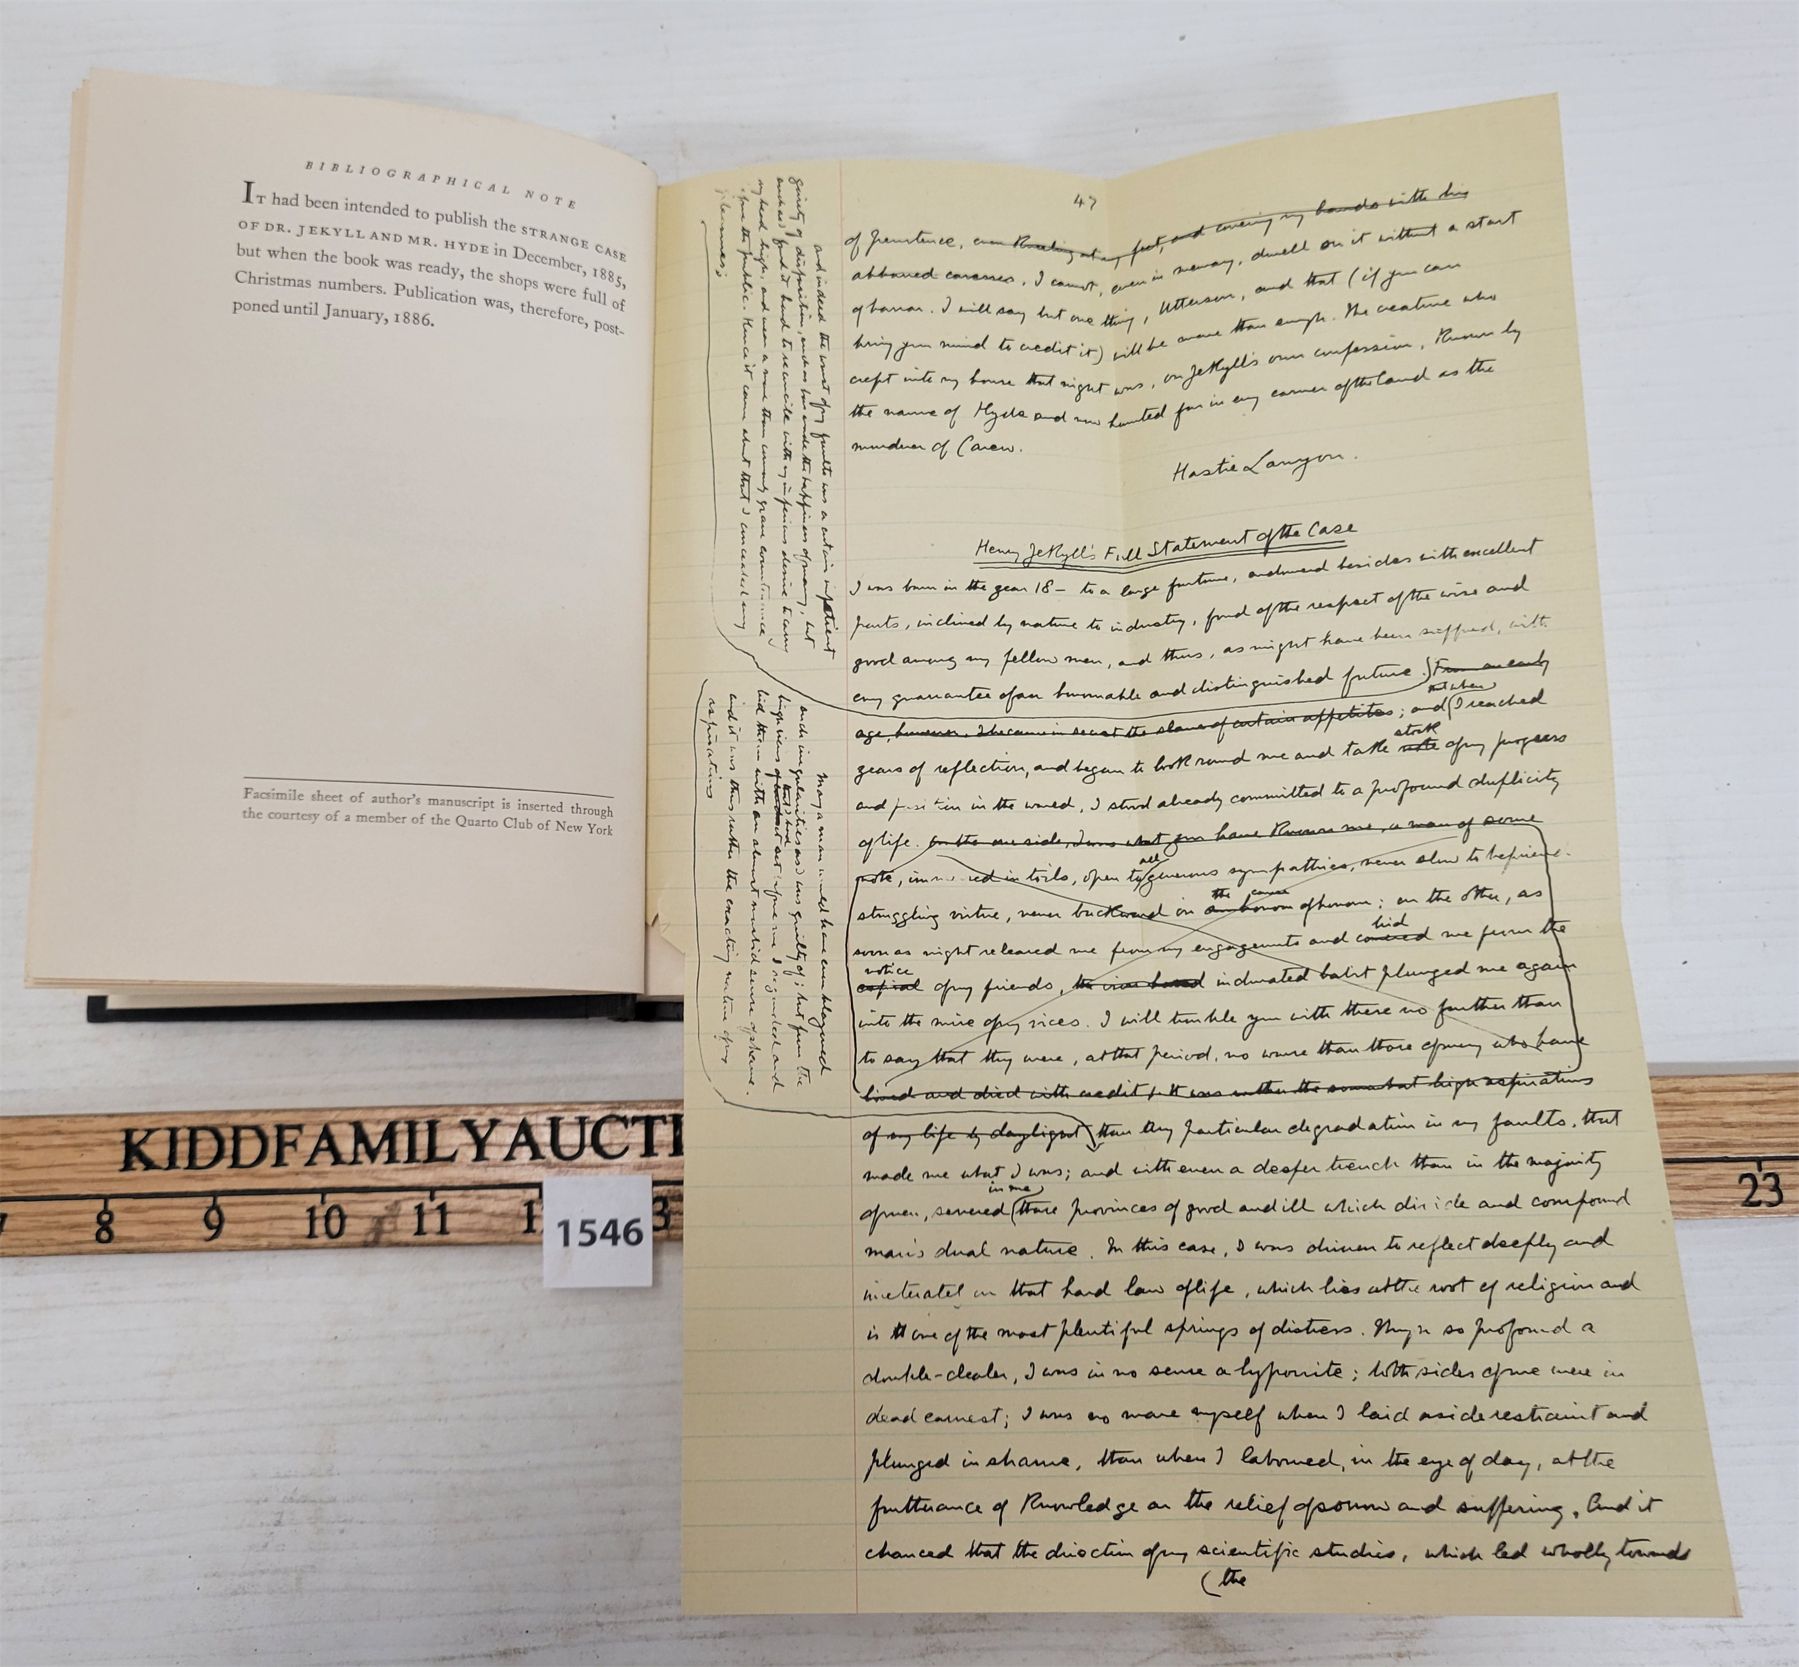 BIBLIOGRAPHICAL NOTE
IT had been intended to publish the STRANGE CASE
OF DR. JEKYLL AND MR. HYDE in December, 1885,
but when the book was ready, the shops were full of
Christmas numbers. Publication was, therefore, post-
poned until January, 1886.
Facsimile sheet of author's manuscript is inserted through
the courtesy of a member of the Quarto Club of New York
47
of penitence, even kneeling at my feet, and covering my hands with his
abhorred caresses, I cannot, even in memory, dwell on it without a start
of horror. I will say but one thing, Utterson, and that (if you can
bring your mind to credit it) will be more than enough. The creature who
crept into my house that night was, on Jekyll's own confession, known by
the name of Hyde and now hunted for in every corner of the land as the
murderer of Carew.
Hastie Lanyon.
Henry Jekyll's Full Statement of the Case
I was born in the year 18— to a large fortune, endowed besides with excellent
parts, inclined by nature to industry, fond of the respect of the wise and
good among my fellow men, and thus, as might have been supposed, with
every guarantee of an honourable and distinguished future. From an early
that when
age, however, I became in secret the slave of certain appetites; and I reached
stock
years of reflection, and began to look round me and take note of my progress
and position in the world, I stood already committed to a profound duplicity
of life. On the one side, I was what you have known me, a man of some
all
note, immersed in toils, open to generous sympathies, never slow to befriend
the cause
struggling virtue, never backward in an honour of honour; on the other, as
hid
soon as night released me from my engagements and covered me from the
notice
of my friends, the iron hand indurated habit plunged me again
into the mire of my vices. I will trouble you with these no further than
to say that they were, at that period, no worse than those of many who have
lived and died with credit. It was rather the somewhat high aspirations
of my life by daylight than any particular degradation in my faults, that
made me what I was; and with even a deeper trench than in the majority
in me
of men, severed those provinces of good and ill which divide and compound
man's dual nature. In this case, I was driven to reflect deeply and
inveterately on that hard law of life, which lies at the root of religion and
is one of the most plentiful springs of distress. Though so profound a
double-dealer, I was in no sense a hypocrite; both sides of me were in
dead earnest; I was no more myself when I laid aside restraint and
plunged in shame, than when I laboured, in the eye of day, at the
furtherance of knowledge or the relief of sorrow and suffering. And it
chanced that the direction of my scientific studies, which led wholly towards
(the
and indeed the worst of my faults was a certain impatient
gaiety of disposition, such as has made the happiness of many, but
such as I found it hard to reconcile with my imperious desire to carry
my head high, and wear a more than commonly grave countenance
before the public. Hence it came about that I concealed my
pleasures;
Many a man would have even blazoned
such irregularities as I was guilty of; but from the
high views that I had set before me I regarded and
hid them with an almost morbid sense of shame.
and it was thus rather the exacting nature of my
aspirations
KIDDFAMILYAUCTI
8 9 10 11 1 3 23
1546